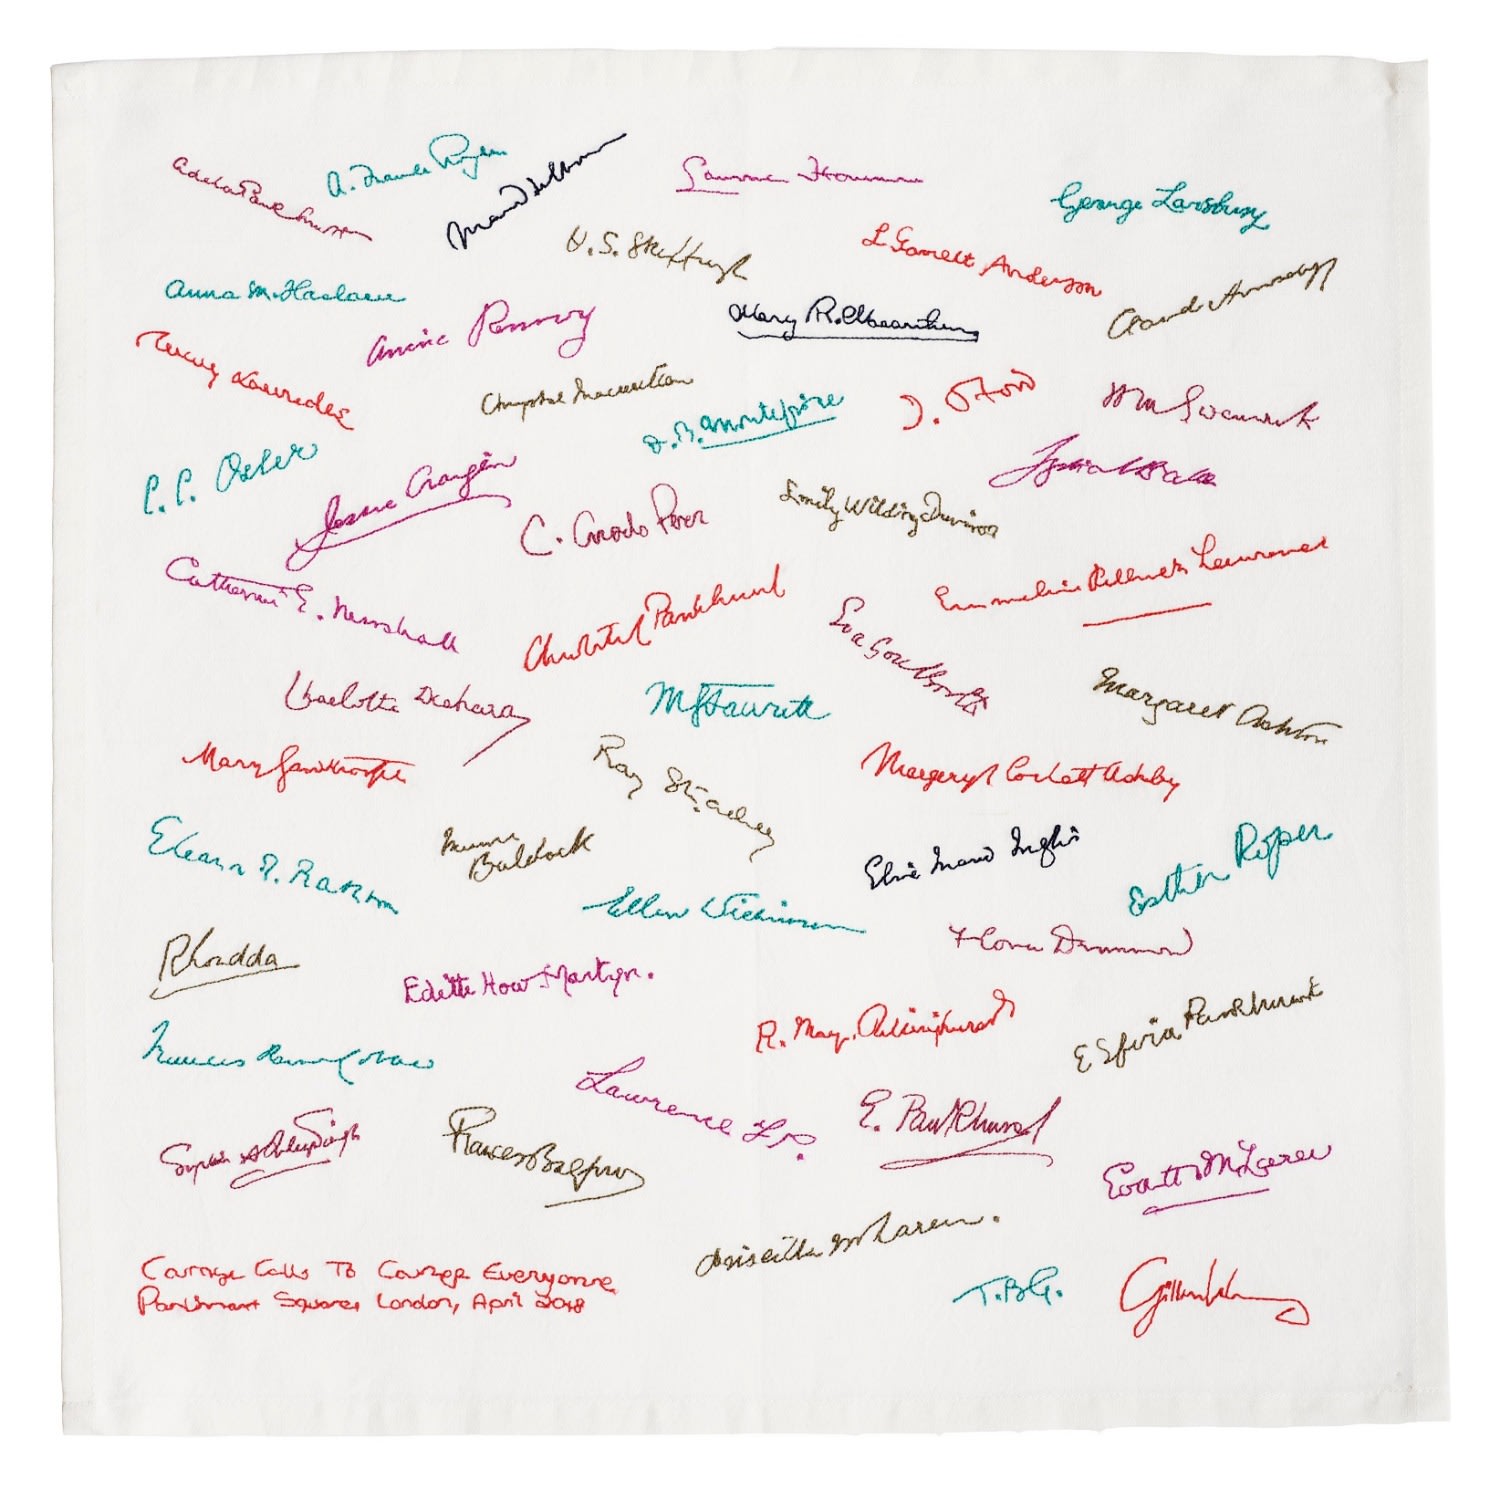 Adela Pankhurst
A. Maude Royden
Maud Selborne
Laurence Housman
George Lansbury
H. S. Skeffington
L Garrett Anderson
Claude Hinscliff
Anna M. Haslam
Annie Kenney
Mary R. Macarthur
Teresa Billington
Chrystal Macmillan
D. B. Montefiore
I. O. Ford
C. C. Osler
Jessie Craigen
Lydia Becker
C. Corado Perez
Emily Wilding Davison
Catherine E. Marshall
Christabel Pankhurst
Emmeline Pethick Lawrence
Eva Gore Booth
Charlotte Despard
M G Fawcett
Margaret Ashton
Mary Gawthorpe
Ray Strachey
Margery Corbett Ashby
Eleanor F. Rathbone
Minnie
Baldock
Elsie Maud Inglis
Esther Roper
Ellen Wilkinson
Flora Drummond
Rhondda
Edith How Martyn.
R. May. Billinghurst
E Sylvia Pankhurst
Frances Power Cobbe
Lawrence F. P.
E. Pankhurst
Sophia A Duleep Singh
Frances Balfour
Eva McLaren
Priscilla McLaren.
Courage Calls To Courage Everyone
Parliament Square London, April 2018
T.B.G.
Gillian Wearing